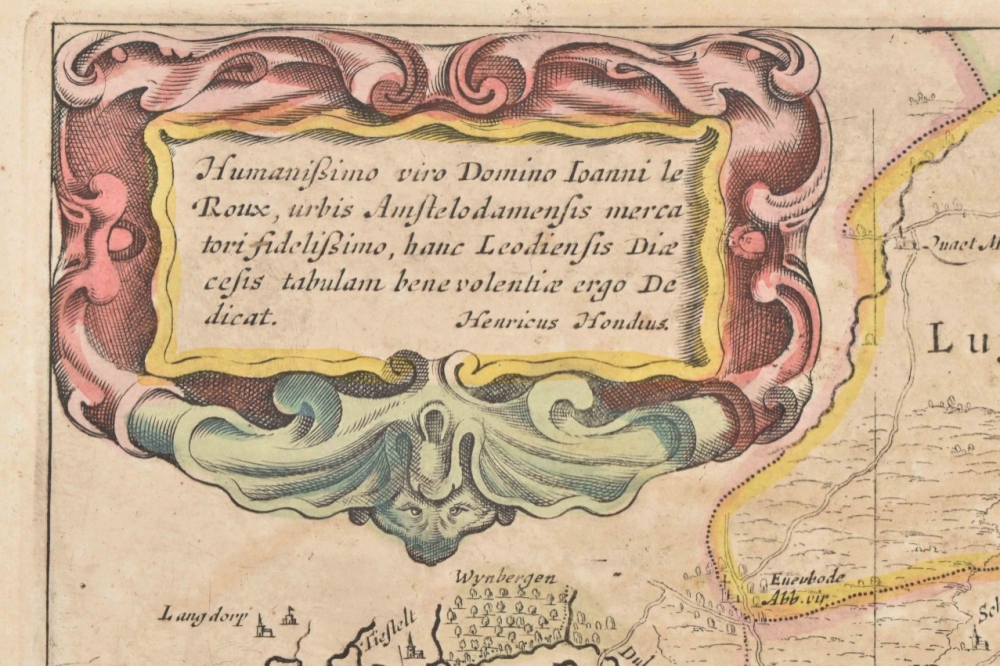 Humanißimo viro Domino Ioanni le
Roux, urbis Amſtelodamenſis merca
tori fideliſſimo, hanc Leodienſis Diæ
ceſis tabulam benevolentiæ ergo De
dicat.
Henricus Hondius.
Lu
Wynbergen
Euerbode
Abb. vir
Langdorp
Tieſtelt